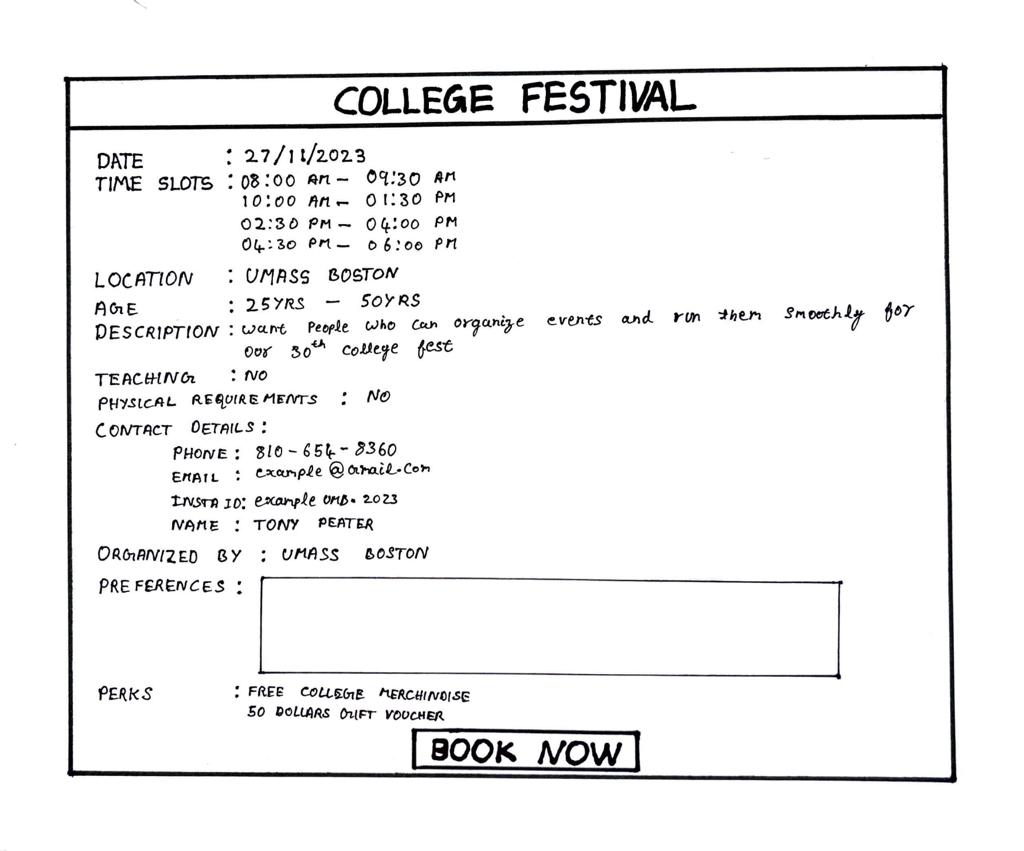 COLLEGE FESTIVAL
DATE : 27/11/2023
TIME SLOTS : 08:00 AM - 09:30 AM
10:00 AM - 01:30 PM
02:30 PM - 04:00 PM
04:30 PM - 06:00 PM
LOCATION : UMASS BOSTON
AGE : 25YRS - 50YRS
DESCRIPTION : want People who can organize events and run them smoothly for
our 30th college fest
TEACHING : NO
PHYSICAL REQUIREMENTS : NO
CONTACT DETAILS :
PHONE : 810-654-8360
EMAIL : example@Gmail.Com
INSTA ID: example UMB. 2023
NAME : TONY PEATER
ORGANIZED BY : UMASS BOSTON
PREFERENCES :
PERKS : FREE COLLEGE MERCHINDISE
50 DOLLARS GIFT VOUCHER
BOOK NOW